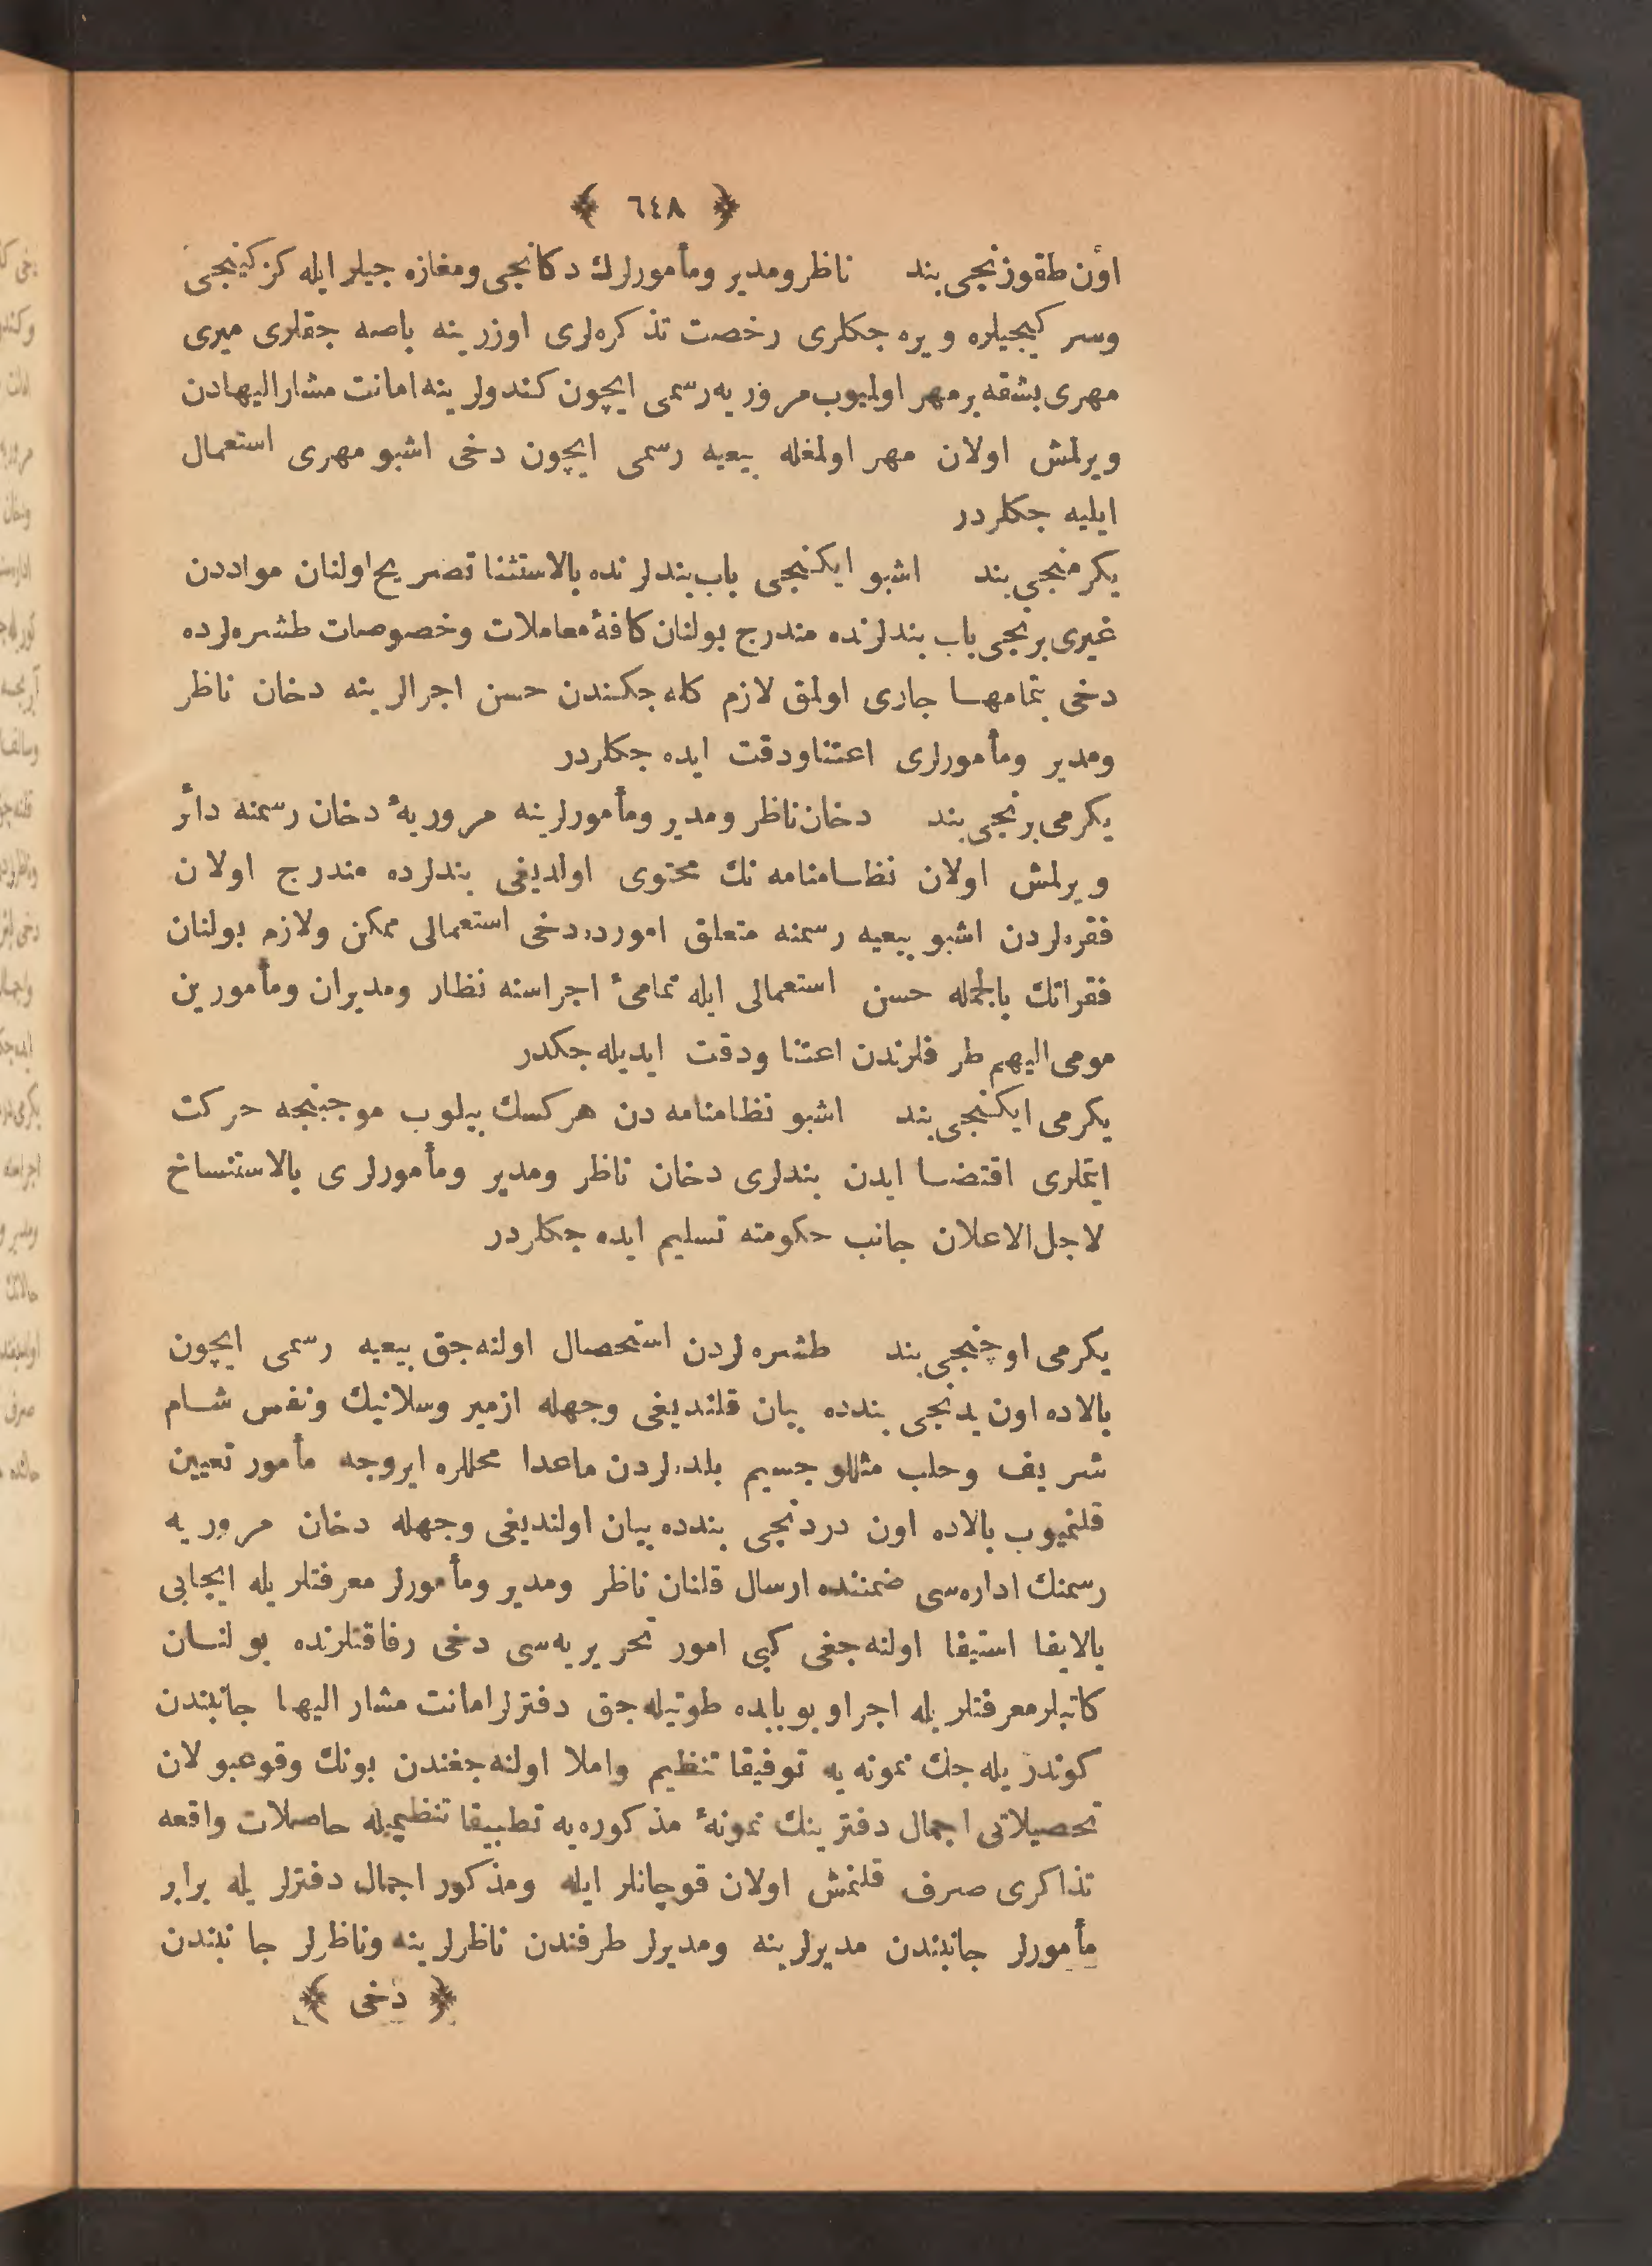 ﴿ ٦٤٨ ﴾
اون طقوزنجی بند ناظر ومدیر ومأمورلرك دكانجی ومغازه جیلر ایله كزكینجی
وسركیجیلره ویره جكلری رخصت تذكره‌لری اوزرینه باصه جقلری میری
مهری بشقه برمهر اولمیوب مروریه رسمی ایچون كندولرینه امانت مشارالیهادن
ویرلمش اولان مهر اولمغله بیعیه رسمی ایچون دخی اشبو مهری استعمال
ایلیه جكلردر
یكرمنجی بند اشبو ایكنجی باب بندلرنده بالاستثنا تصریح اولنان مواددن
غیری برنجی باب بندلرنده مندرج بولنان كافهٔ معاملات وخصوصات طشره‌لرده
دخی بتمامهـا جاری اولمق لازم كله جكندن حسن اجرالرینه دخان ناظر
ومدیر ومأمورلری اعتناودقت ایده جكلردر
یكرمی برنجی بند دخان ناظر ومدیر ومأمورلرینه مروریهٔ دخان رسمنه دائر
ویرلمش اولان نظـامنامه نك محتوی اولدیغی بندلرده مندرج اولان
فقره‌لردن اشبو بیعیه رسمنه متعلق امورده دخی استعمالی ممكن ولازم بولنان
فقراتك بالجمله حسن استعمالی ایله تمامیٔ اجراسنه نظار ومدیران ومأمورین
مومی الیهم طرفلرندن اعتنا ودقت ایدیله جكدر
یكرمی ایكنجی بند اشبو نظامنامه دن هركسك بیلوب موجبنجه حركت
ایتملری اقتضـا ایدن بندلری دخان ناظر ومدیر ومأمورلری بالاستنساخ
لاجل الاعلان جانب حكومته تسلیم ایده جكلردر
یكرمی اوچنجی بند طشره لردن استحصال اولنه جق بیعیه رسمی ایچون
بالاده اون یدنجی بندده بیان قلندیغی وجهله ازمیر وسلانیك ونفس شـام
شریف وحلب مثللو جسیم بلده‌لردن ماعدا محللره ایروجه مأمور تعیین
قلنمیوب بالاده اون دردنجی بندده بیان اولندیغی وجهله دخان مروریه
رسمنك اداره‌سی ضمننده ارسال قلنان ناظر ومدیر ومأمورلر معرفتلریله ایجابی
بالایفا استیفا اولنه جغی كبی امور تحریریه‌سی دخی رفاقتلرنده بولنـان
كاتبلر معرفتلریله اجرا وبوبابده طوتیله جق دفترلر امانت مشار الیها جانبندن
كوندریله جك نمونه یه توفیقا تنظیم واملا اولنه جغندن بونك وقوعبولان
تحصیلاتی اجمال دفترینك نمونهٔ مذكوره‌یه تطبیقا تنظیمیله حاصلات واقعه
تذاكری صرف قلنمش اولان قوچانلر ایله ومذكور اجمال دفترلریله برابر
مأمورلر جانبندن مدیرلرینه ومدیرلر طرفندن ناظرلرینه وناظرلر جانبندن
﴿ دخی ﴾